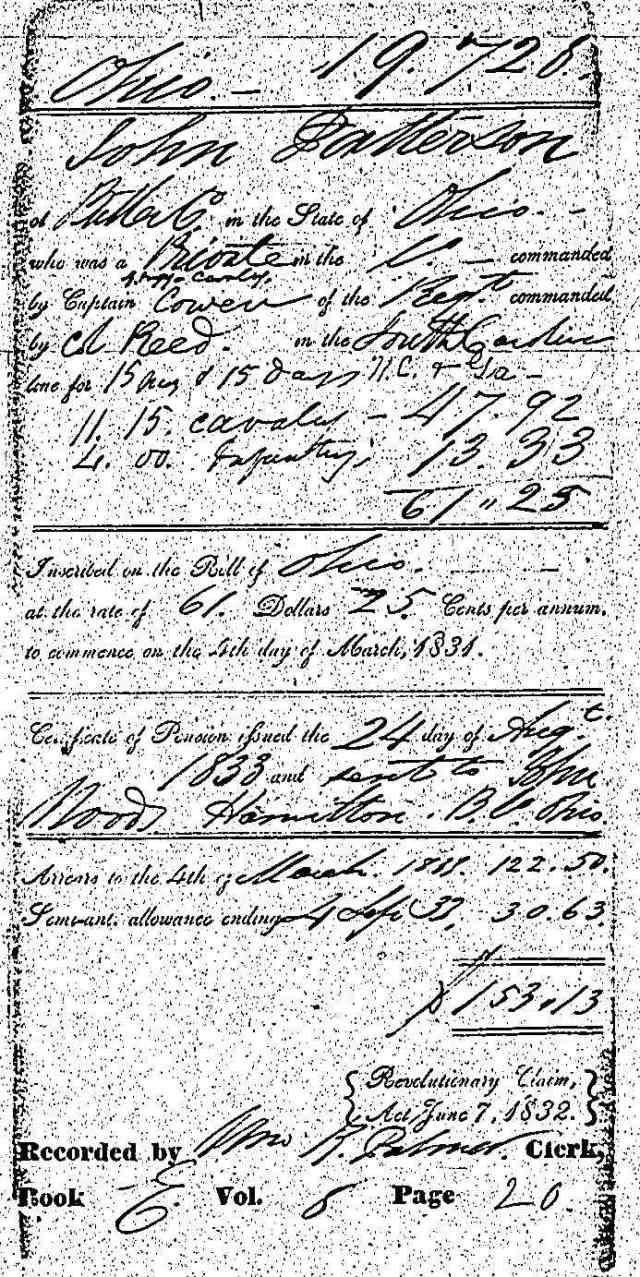 Ohio. - 19.728.
John Patterson
of Butler Co. in the State of Ohio. -
who was a Private in the Co. - commanded
by Captain Cowen of the Regt commanded
by Col Reed. in the South Carolina
line for 15 days N.C. & Ga -
11. 15. cavalry - 47.92
4. 00. Infantry, 13.33
61 " 25
Inscribed on the Roll of Ohio.
at the rate of 61. Dollars 25. Cents per annum,
to commence on the 4th day of March, 1831.
Certificate of Pension issued the 24 day of Augt.
1833 and sent to John
Woods Hamilton. B. Co. Ohio.
Arrears to the 4th of March. 122.50.
Semi-ant. allowance ending 4 Sept 33, 30.63.
$ 153.13
Revolutionary Claim,
Act, June 7, 1832.
Recorded by K. Palmer. Clerk,
Book E. Vol. 8 Page 20